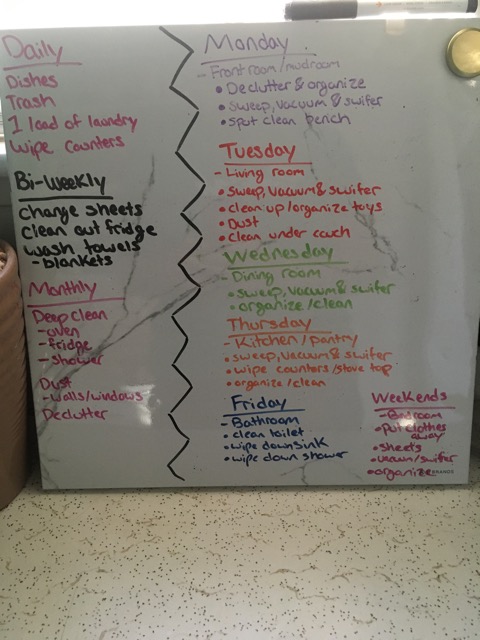 Daily
Dishes
Trash
1 load of laundry
wipe counters
Bi-Weekly
change sheets
clean out fridge
wash towels
- blankets
Monthly
Deep clean
- oven
- fridge
- shower
Dust
- walls/windows
Declutter
Monday
- Front room/mudroom
• Declutter & organize
• sweep, vacuum & swifer
• spot clean bench
Tuesday
- Living room
• sweep, vacuum & swifer
• clean up/organize toys
• Dust
• clean under couch
Wednesday
- Dining room
• sweep, vacuum & swifer
• organize/clean
Thursday
- Kitchen/pantry
• sweep, vacuum & swifer
• wipe counters/stove top
• organize/clean
Friday
- Bathroom
• clean toilet
• wipe down sink
• wipe down shower
Weekends
- Bedroom
• Put clothes
away
• sheets
• vacuum/swifer
• organize
BRANDS